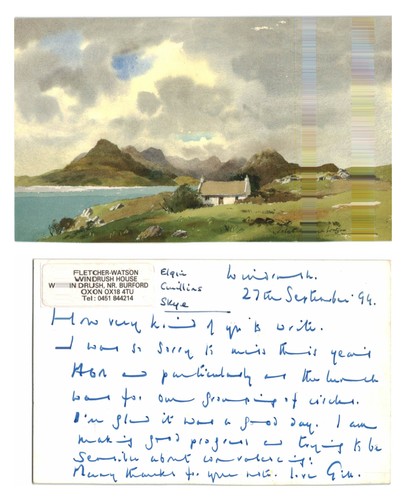 FLETCHER-WATSON
WINDRUSH HOUSE
WINDRUSH, NR. BURFORD
OXON OX18 4TU
Tel: 0451 844214
Elgin
Cuillins
Skye
Windrush.
27th September 94.
How very kind of you to write.
I was so sorry to miss this year's
AGM and particularly as the lunch
was for our grouping of circles.
I'm glad it was a good day. I am
making good progress and trying to be
sensible about convalescing!
Many thanks for your note. love Gill.